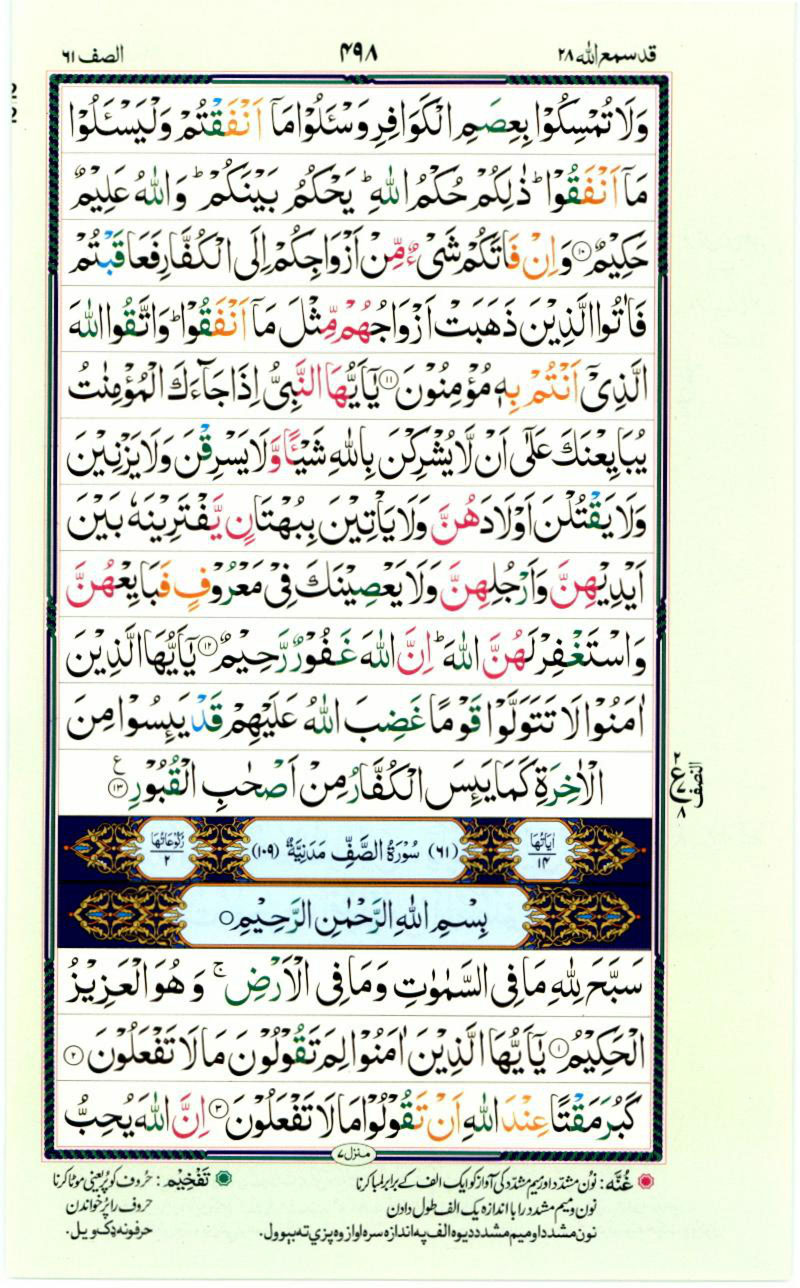 قد سمع الله ٢٨
۴۹۸
الصف ٦١
وَلَا تُمْسِكُوْا بِعِصَمِ الْكَوَافِرِ وَسْـَٔلُوْا مَاۤ اَنْفَقْتُمْ وَلْيَسْـَٔلُوْا
مَاۤ اَنْفَقُوْا ؕ ذٰلِكُمْ حُكْمُ اللّٰهِ ؕ يَحْكُمُ بَيْنَكُمْ ؕ وَاللّٰهُ عَلِيْمٌ
حَكِيْمٌ ۝۱۰ وَاِنْ فَاتَكُمْ شَيْءٌ مِّنْ اَزْوَاجِكُمْ اِلَى الْكُفَّارِ فَعَاقَبْتُمْ
فَاٰتُوا الَّذِيْنَ ذَهَبَتْ اَزْوَاجُهُمْ مِّثْلَ مَاۤ اَنْفَقُوْا ؕ وَاتَّقُوا اللّٰهَ
الَّذِيْۤ اَنْتُمْ بِهٖ مُؤْمِنُوْنَ ۝۱۱ يٰۤاَيُّهَا النَّبِيُّ اِذَا جَآءَكَ الْمُؤْمِنٰتُ
يُبَايِعْنَكَ عَلٰۤى اَنْ لَّا يُشْرِكْنَ بِاللّٰهِ شَيْـًٔا وَّلَا يَسْرِقْنَ وَلَا يَزْنِيْنَ
وَلَا يَقْتُلْنَ اَوْلَادَهُنَّ وَلَا يَاْتِيْنَ بِبُهْتَانٍ يَّفْتَرِيْنَهٗ بَيْنَ
اَيْدِيْهِنَّ وَاَرْجُلِهِنَّ وَلَا يَعْصِيْنَكَ فِيْ مَعْرُوْفٍ فَبَايِعْهُنَّ
وَاسْتَغْفِرْ لَهُنَّ اللّٰهَ ؕ اِنَّ اللّٰهَ غَفُوْرٌ رَّحِيْمٌ ۝۱۲ يٰۤاَيُّهَا الَّذِيْنَ
اٰمَنُوْا لَا تَتَوَلَّوْا قَوْمًا غَضِبَ اللّٰهُ عَلَيْهِمْ قَدْ يَىِٕسُوْا مِنَ
الْاٰخِرَةِ كَمَا يَىِٕسَ الْكُفَّارُ مِنْ اَصْحٰبِ الْقُبُوْرِ ۝۱۳ ع
٢
ع
٧
٨
النصف
اٰيَاتُهَا ١٤
(٦١) سُوْرَةُ الصَّفِّ مَدَنِيَّةٌ (١٠٩)
رُكُوْعَاتُهَا ٢
بِسْمِ اللّٰهِ الرَّحْمٰنِ الرَّحِيْمِ ۝
سَبَّحَ لِلّٰهِ مَا فِي السَّمٰوٰتِ وَمَا فِي الْاَرْضِ ۚ وَهُوَ الْعَزِيْزُ
الْحَكِيْمُ ۝۱ يٰۤاَيُّهَا الَّذِيْنَ اٰمَنُوْا لِمَ تَقُوْلُوْنَ مَا لَا تَفْعَلُوْنَ ۝۲
كَبُرَ مَقْتًا عِنْدَ اللّٰهِ اَنْ تَقُوْلُوْا مَا لَا تَفْعَلُوْنَ ۝۳ اِنَّ اللّٰهَ يُحِبُّ
منزل ۷
غُنَّه : نون مشدد اور میم مشدد کی آواز کو ایک الف کے برابر لمبا کرنا
نون و میم مشدد را با اندازه یک الف طول دادن
نون مشدد او میم مشدد دیوه الف په اندازه سره اواز وه پزې ته بېوول.
تَفْخِیْم : حروف کو پُر یعنی موٹا کرنا
حروف را پُر خواندن
حرفونه ډک ویل.